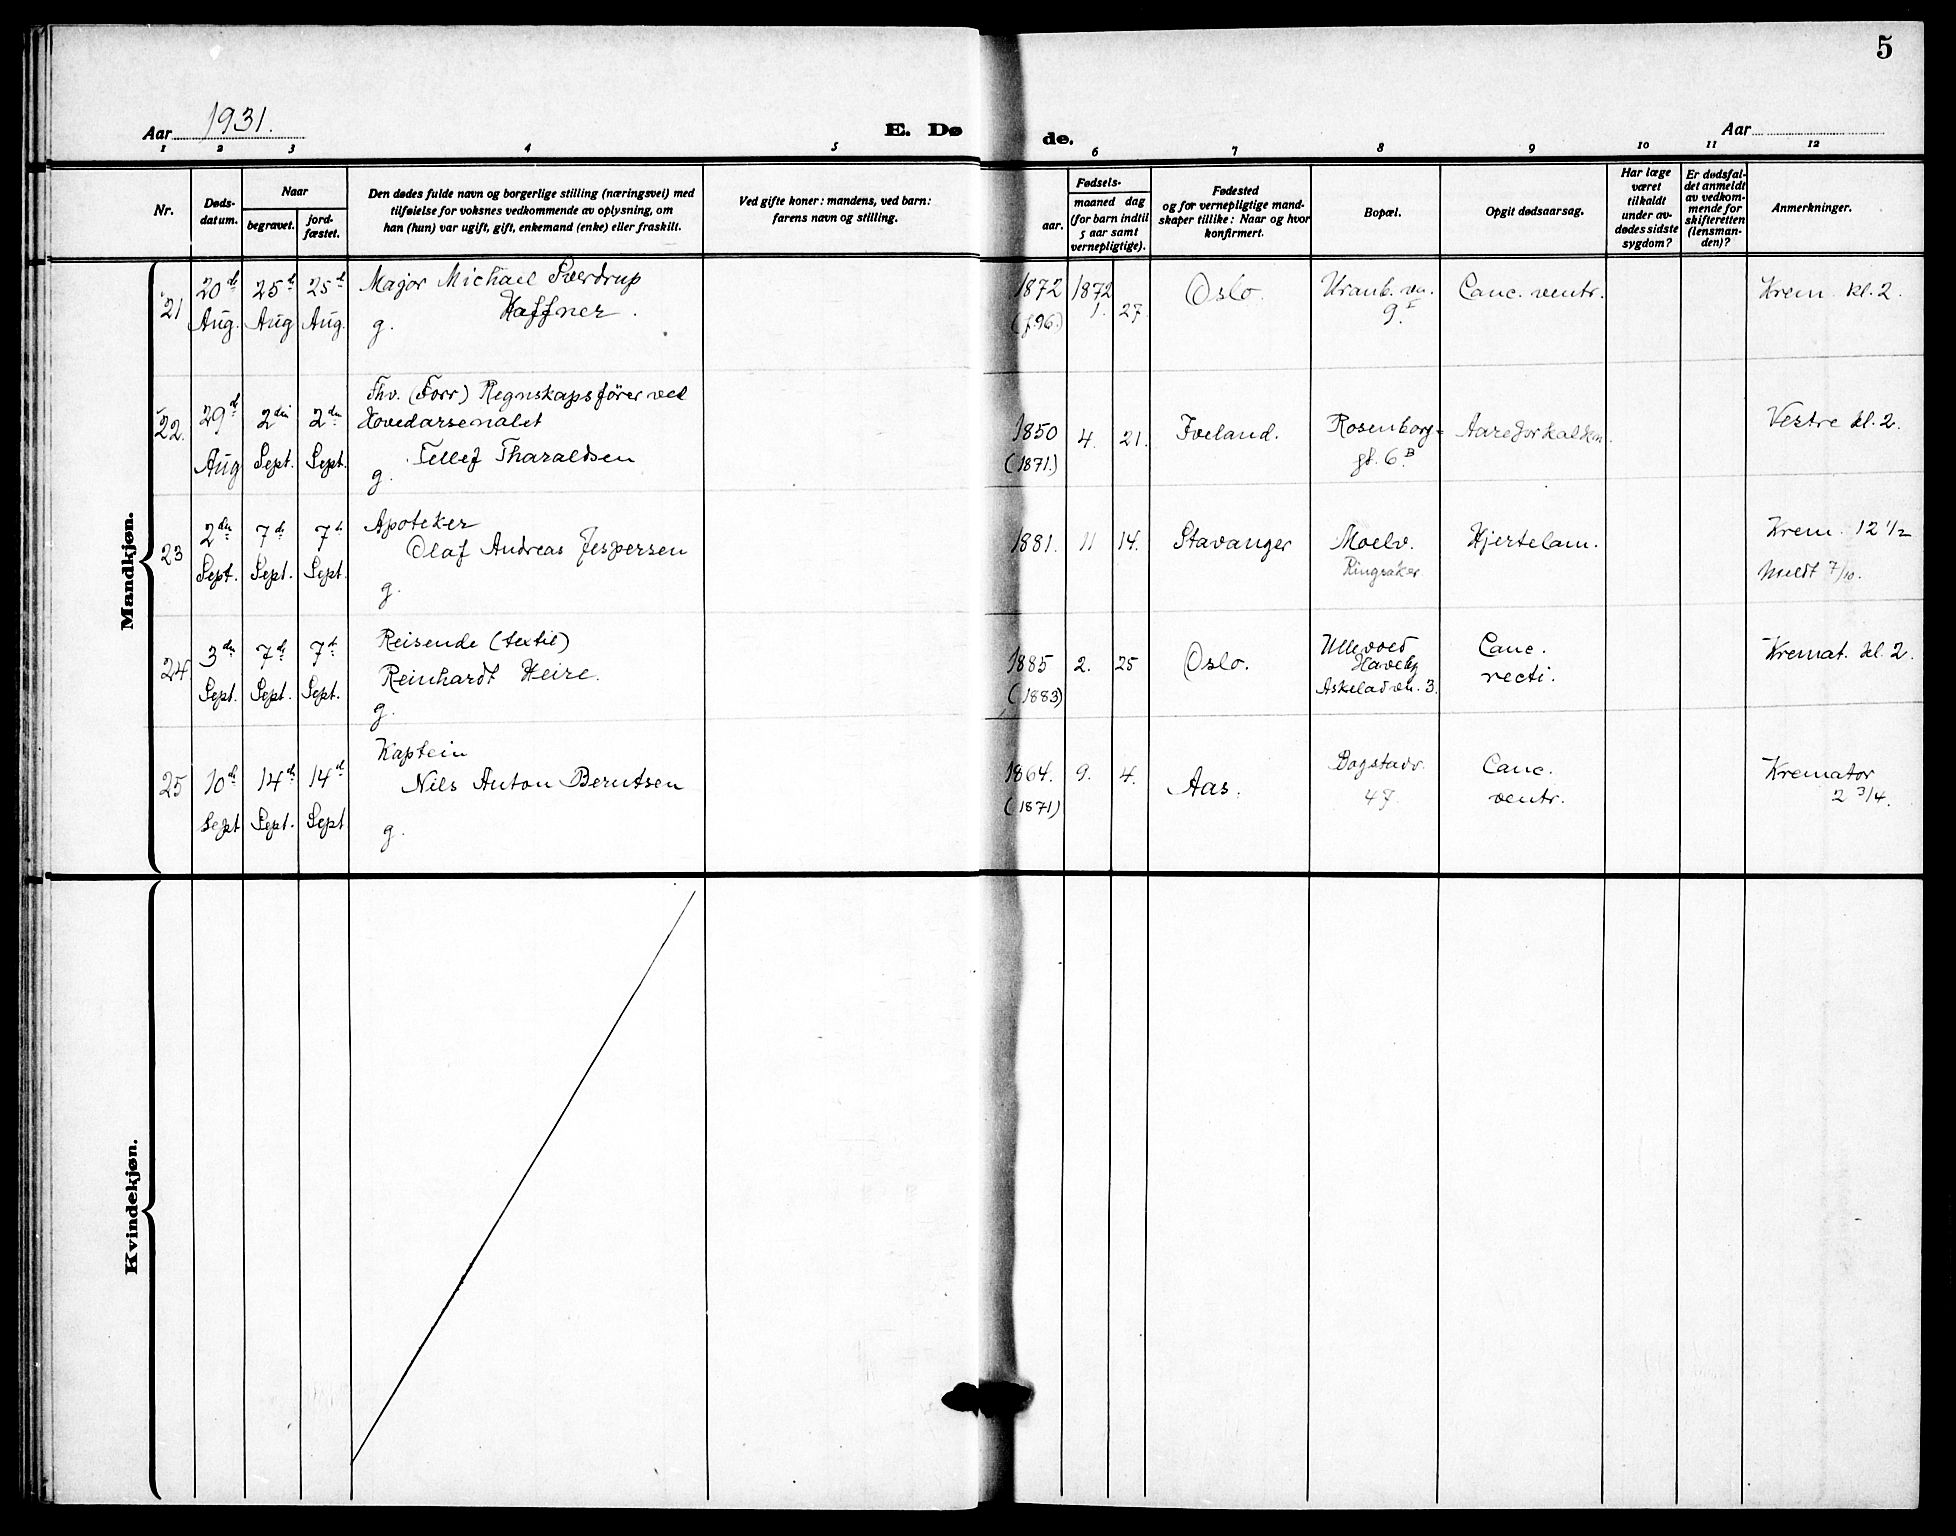 5
Aar 1931.
E. Dø de.
Aar
1 2 3 4 5 6 7 8 9 10 11 12
Nr.
Døds-
datum.
Naar
begravet.
jord-
fæstet.
Den dødes fulde navn og borgerlige stilling (næringsvei) med
tilføielse for voksnes vedkommende av oplysning, om
han (hun) var ugift, gift, enkemand (enke) eller fraskilt.
Ved gifte koner: mandens, ved barn:
farens navn og stilling.
Fødsels-
aar.
maaned dag
(for barn indtil
5 aar samt
vernepligtige).
Fødested
og for vernepligtige mand-
skaper tillike: Naar og hvor
konfirmert.
Bopæl.
Opgit dødsaarsag.
Har læge
været
tilkaldt
under av-
dødes sidste
sygdom?
Er dødsfal-
det anmeldt
av vedkom-
mende for
skifteretten
(lensman-
den)?
Anmerkninger.
Mandkjøn.
21
20de
Aug.
25de
Aug
25de
Aug.
Major Michael Sverdrup
Haffner.
g.
1872
1872
27.
Oslo.
Uranb. vn.
9 I
Canc. ventr.
Krem. kl. 2.
22.
29de
Aug
2den
Sept.
2den
Sept.
Fhv. (Forr) Regnskapsfører ved
Hovedarsenalet
Tellef Tharaldsen
g.
1850
(1871.)
4.
21.
Iveland.
Rosenborg-
gt. 6 B
Aareforkalkn.
Vestre kl. 2.
23
2den
Sept.
7de
Sept.
7de
Sept.
Apoteker
Olaf Andreas Jespersen
g.
1881.
11
14.
Stavanger
Moelv.
Ringsaker
Hjertelam.
Krem. 12 1/2
Meldt 7/10.
24
3die
Sept.
7de
Sept.
7de
Sept.
Reisende (textil)
Reinhardt Heire.
g.
1885
(1883)
2.
25
Oslo.
Ullevold
Haveby
Askeladvn. 3.
Canc.
recti.
Kremat. kl. 2.
25
10de
Sept
14de
Sept.
14de
Sept
Kaptein
Nils Anton Berntsen
g.
1864.
(1871)
9.
4.
Aas.
Bogstadv.
47
Canc.
ventr.
Kremator
2 3/4.
Kvindekjøn.